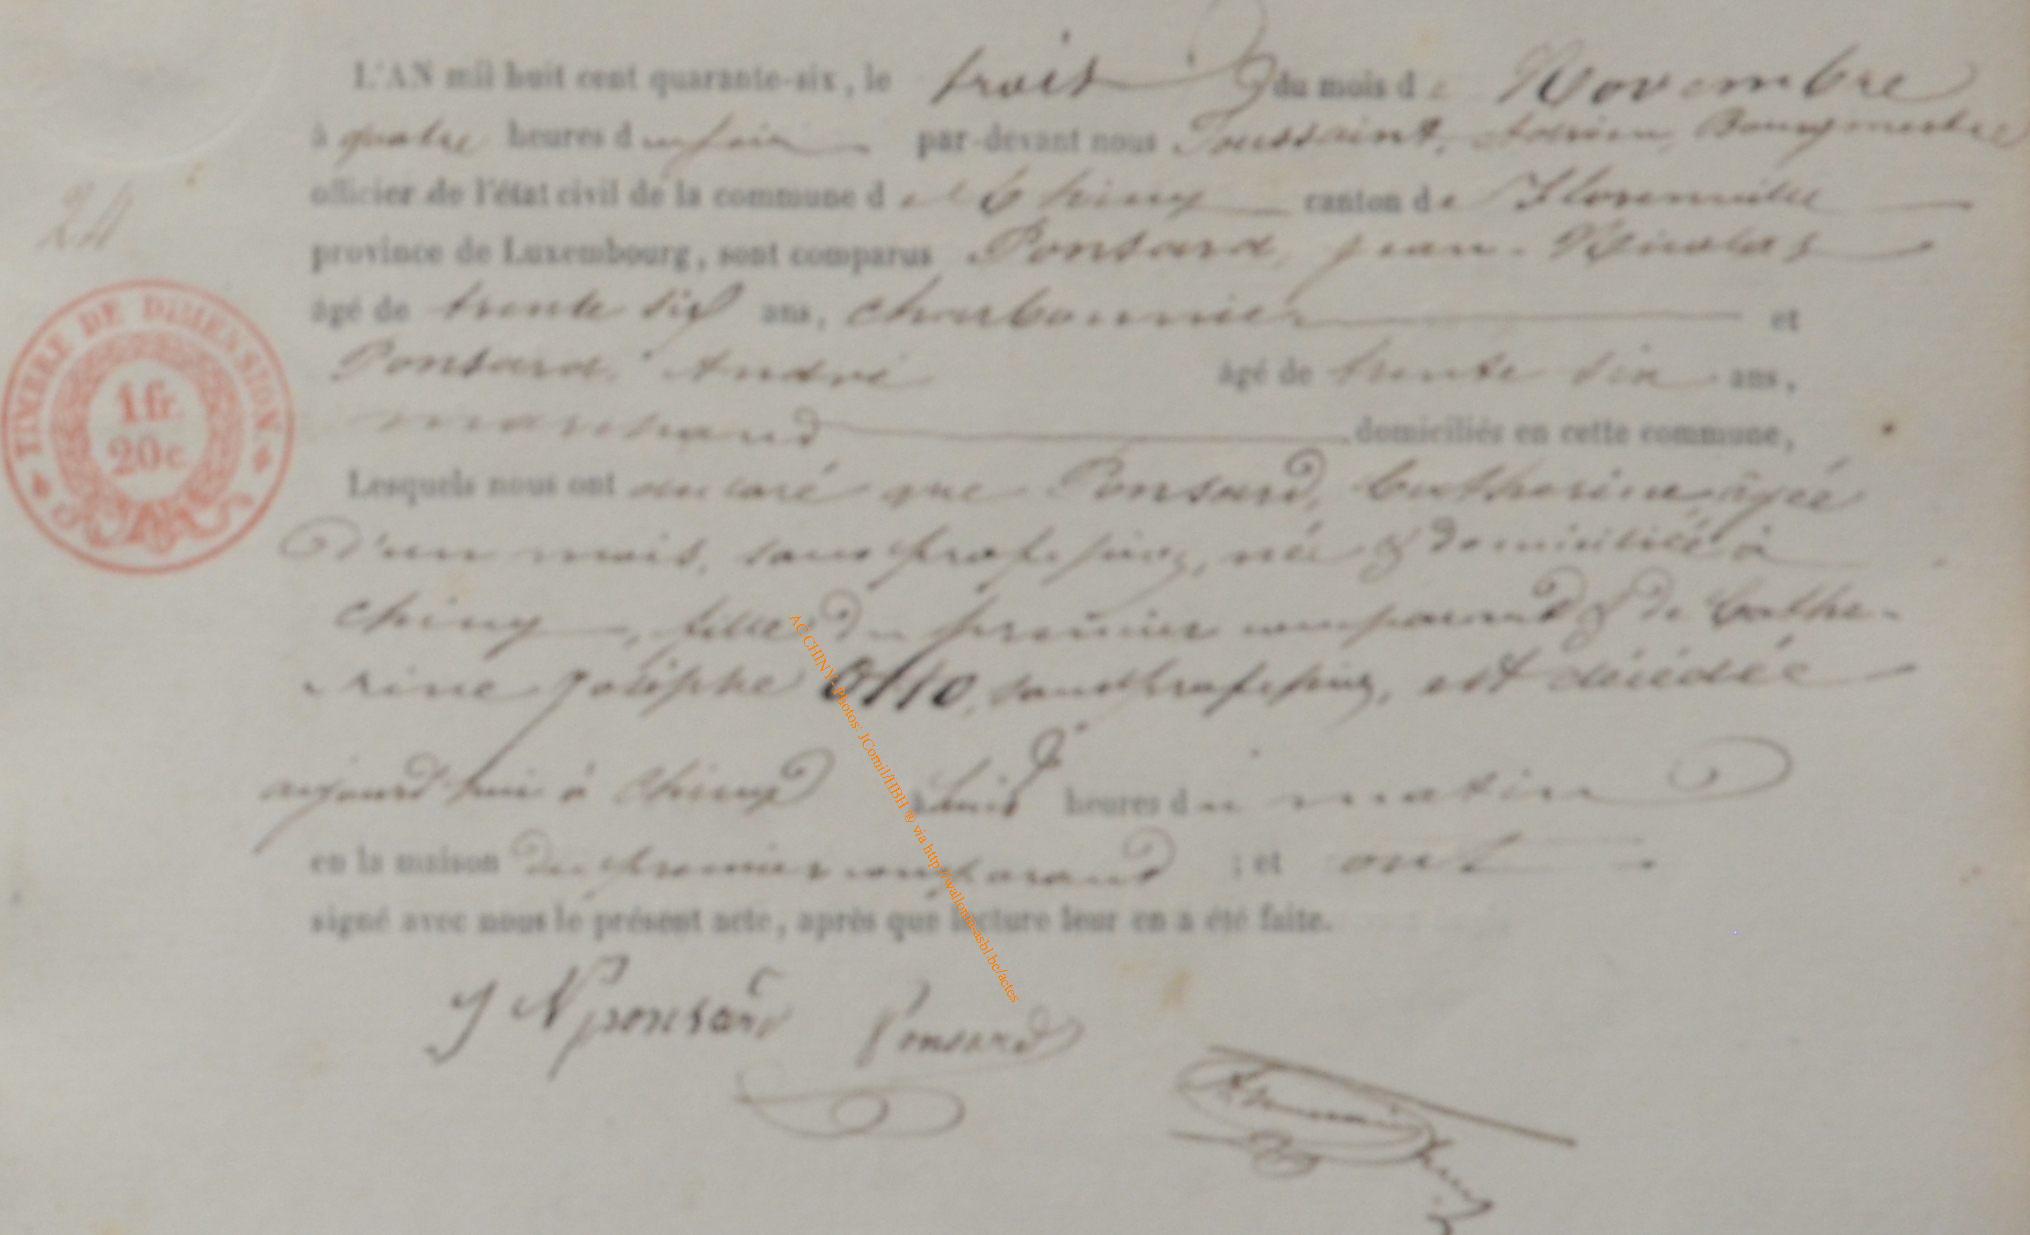 L'AN mil huit cent quarante-six, le trois du mois de Novembre
à quatre heures du soir par-devant nous Toussaint, Adrien, Bourgmestre
officier de l'état civil de la commune de Chiny canton de Florenville
24
province de Luxembourg, sont comparus Ponsard, jean-Nicolas
âgé de trente six ans, charbonnier et
TIMBRE DE DIMENSION
1 fr.
20 c.
Ponsard, André âgé de trente six ans,
marchand domiciliés en cette commune,
Lesquels nous ont déclaré que Ponsard, Catherine, âgée
d'un mois, sans profession, née & domiciliée à
Chiny, fille du premier comparand & de Cathe-
rine Josèphe sans profession, est décédée
aujourd'hui à Chiny à huit heures du matin
en la maison du premier comparand ; et ont
signé avec nous le présent acte, après que lecture leur en a été faite.
J N ponsard Ponsard
AC CHINY - Photos: JCornil/HBH @ via http://wallonia-asbl.be/actes